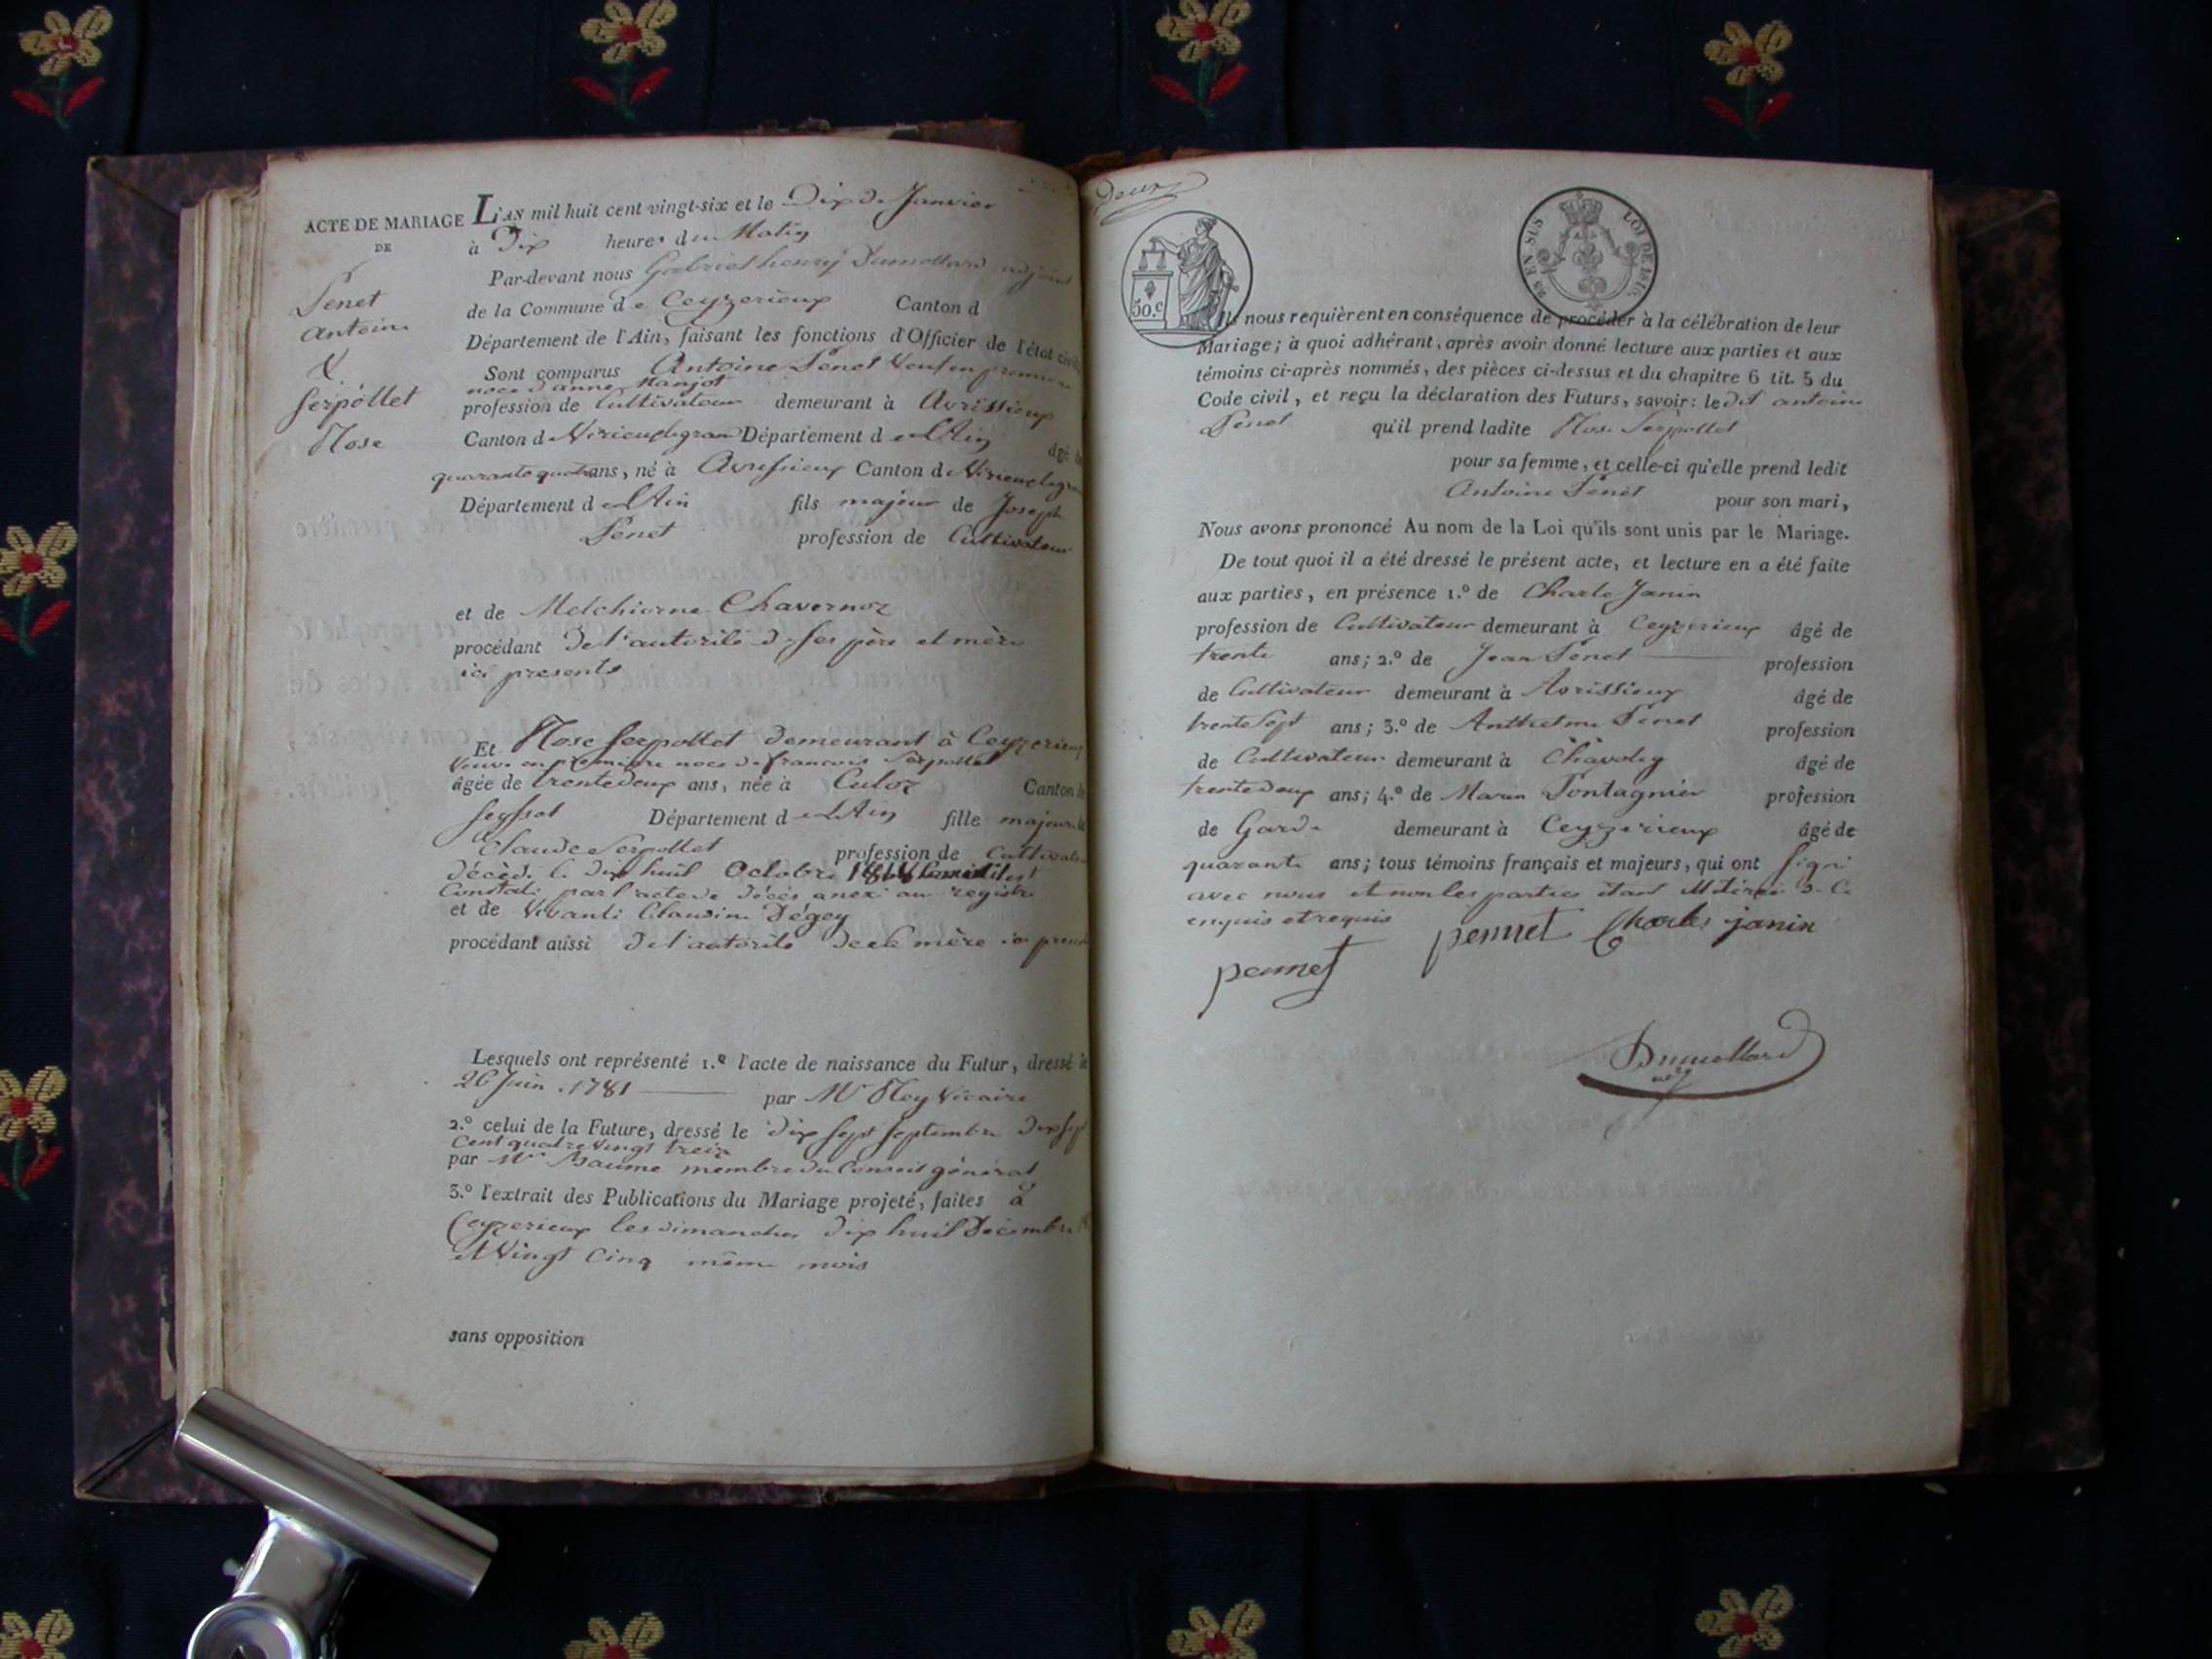 ACTE DE MARIAGE L'AN mil huit cent vingt-six et le Dix de Janvier
DE
à Dix heures du Matin
Par-devant nous Gabriel henry Dumollard adjoint
de la Commune de Ceyzerieux Canton d
Département de l'Ain, faisant les fonctions d'Officier de l'état civil
Penet
Antoine
&
Serpollet
Rose
Sont comparus Antoine Penet Veuf en premiere
noce d'anne Manjot
profession de Cultivateur demeurant à Avrissieux
Canton de Virieulegrand Département de l'Ain âgé de
quarante quatre ans, né à Avrissieux Canton de Virieulegrand
Département de l'Ain fils majeur de Joseph
Penet profession de Cultivateur
et de Melchiorne Chavernoz
procédant de l'autorité de ses père et mère
ici presents
Et Rose Serpollet demeurant à Ceyzerieux
Veuve en premiere noce de francois Serpollet
âgée de trente deux ans, née à Culoz Canton de
Seyssel Département de l'Ain fille majeure de
Claude Serpollet profession de Cultivateur
décédé le dix huit Octobre
Constaté par l'acte de décès anexé au registre
et de Vivante Claudine Dégey
procédant aussi de l'autorité de sa mère ici
Lesquels ont représenté 1.º l'acte de naissance du Futur, dressé le
26 Juin 1781 par Mr Rey Vicaire
2.º celui de la Future, dressé le dix sept septembre dix sept
Cent quatre vingt treize
par Mr Baume membre du Conseil général
3.º l'extrait des Publications du Mariage projeté, faites à
Ceyzerieux les dimanches dix huit Décembre
et Vingt Cinq même mois
sans opposition
Deux
50.c
EN SUS LOI DE
Ils nous requièrent en conséquence de procéder à la célébration de leur
Mariage; à quoi adhérant, après avoir donné lecture aux parties et aux
témoins ci-après nommés, des pièces ci-dessus et du chapitre 6 tit. 5 du
Code civil, et reçu la déclaration des Futurs, savoir: le dit antoine
Penet qu'il prend ladite Rose Serpollet
pour sa femme, et celle-ci qu'elle prend ledit
Antoine Penet pour son mari,
Nous avons prononcé Au nom de la Loi qu'ils sont unis par le Mariage.
De tout quoi il a été dressé le présent acte, et lecture en a été faite
aux parties, en présence 1.º de Charle Janin
profession de Cultivateur demeurant à Ceyzerieux âgé de
trente ans; 2.º de Jean Penet profession
de Cultivateur demeurant à Avrissieux âgé de
trente sept ans; 3.º de Anthelme Penet profession
de Cultivateur demeurant à Chavoley âgé de
trente deux ans; 4.º de Marin Pontagnier profession
de Garde demeurant à Ceyzerieux âgé de
quarante ans; tous témoins français et majeurs, qui ont signé
avec nous et non les parties étant illitéré de Ce
enquis et requis
pennet Charles janin
pennet
Dumollard